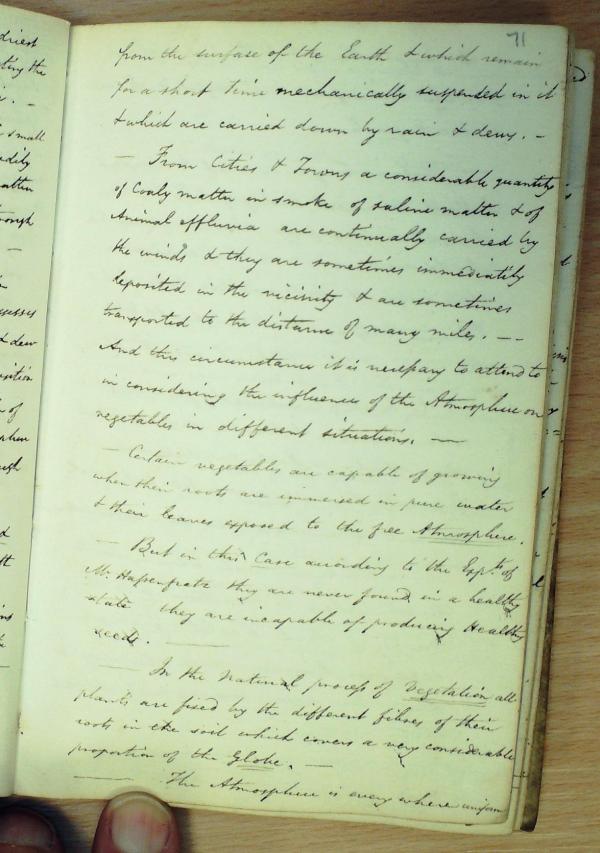 71
from the surface of the Earth & which remain
for a short time mechanically suspended in it
& which are carried down by rain & dews. -
- From Cities & Towns a considerable quantity
of Coaly matter in smoke of saline matter & of
Animal effluvia are continually carried by
the winds & they are sometimes immediately
deposited in the vicinity & are sometimes
transported to the distance of many miles. - -
And this circumstance it is necessary to attend to
in considering the influence of the Atmosphere on
vegetables in different situations. -
- Certain vegetables are capable of growing
when their roots are immersed in pure water
& their leaves exposed to the free Atmosphere.
- But in this Case according to the Expts of
M. Hassenfratz they are never found in a healthy
state they are incapable of producing Healthy
seeds. -
- In the Natural process of Vegetation all
plants are fixed by the different fibres of their
roots in the soil which covers a very considerable
proportion of the Globe. -
- The Atmosphere is every where uniform